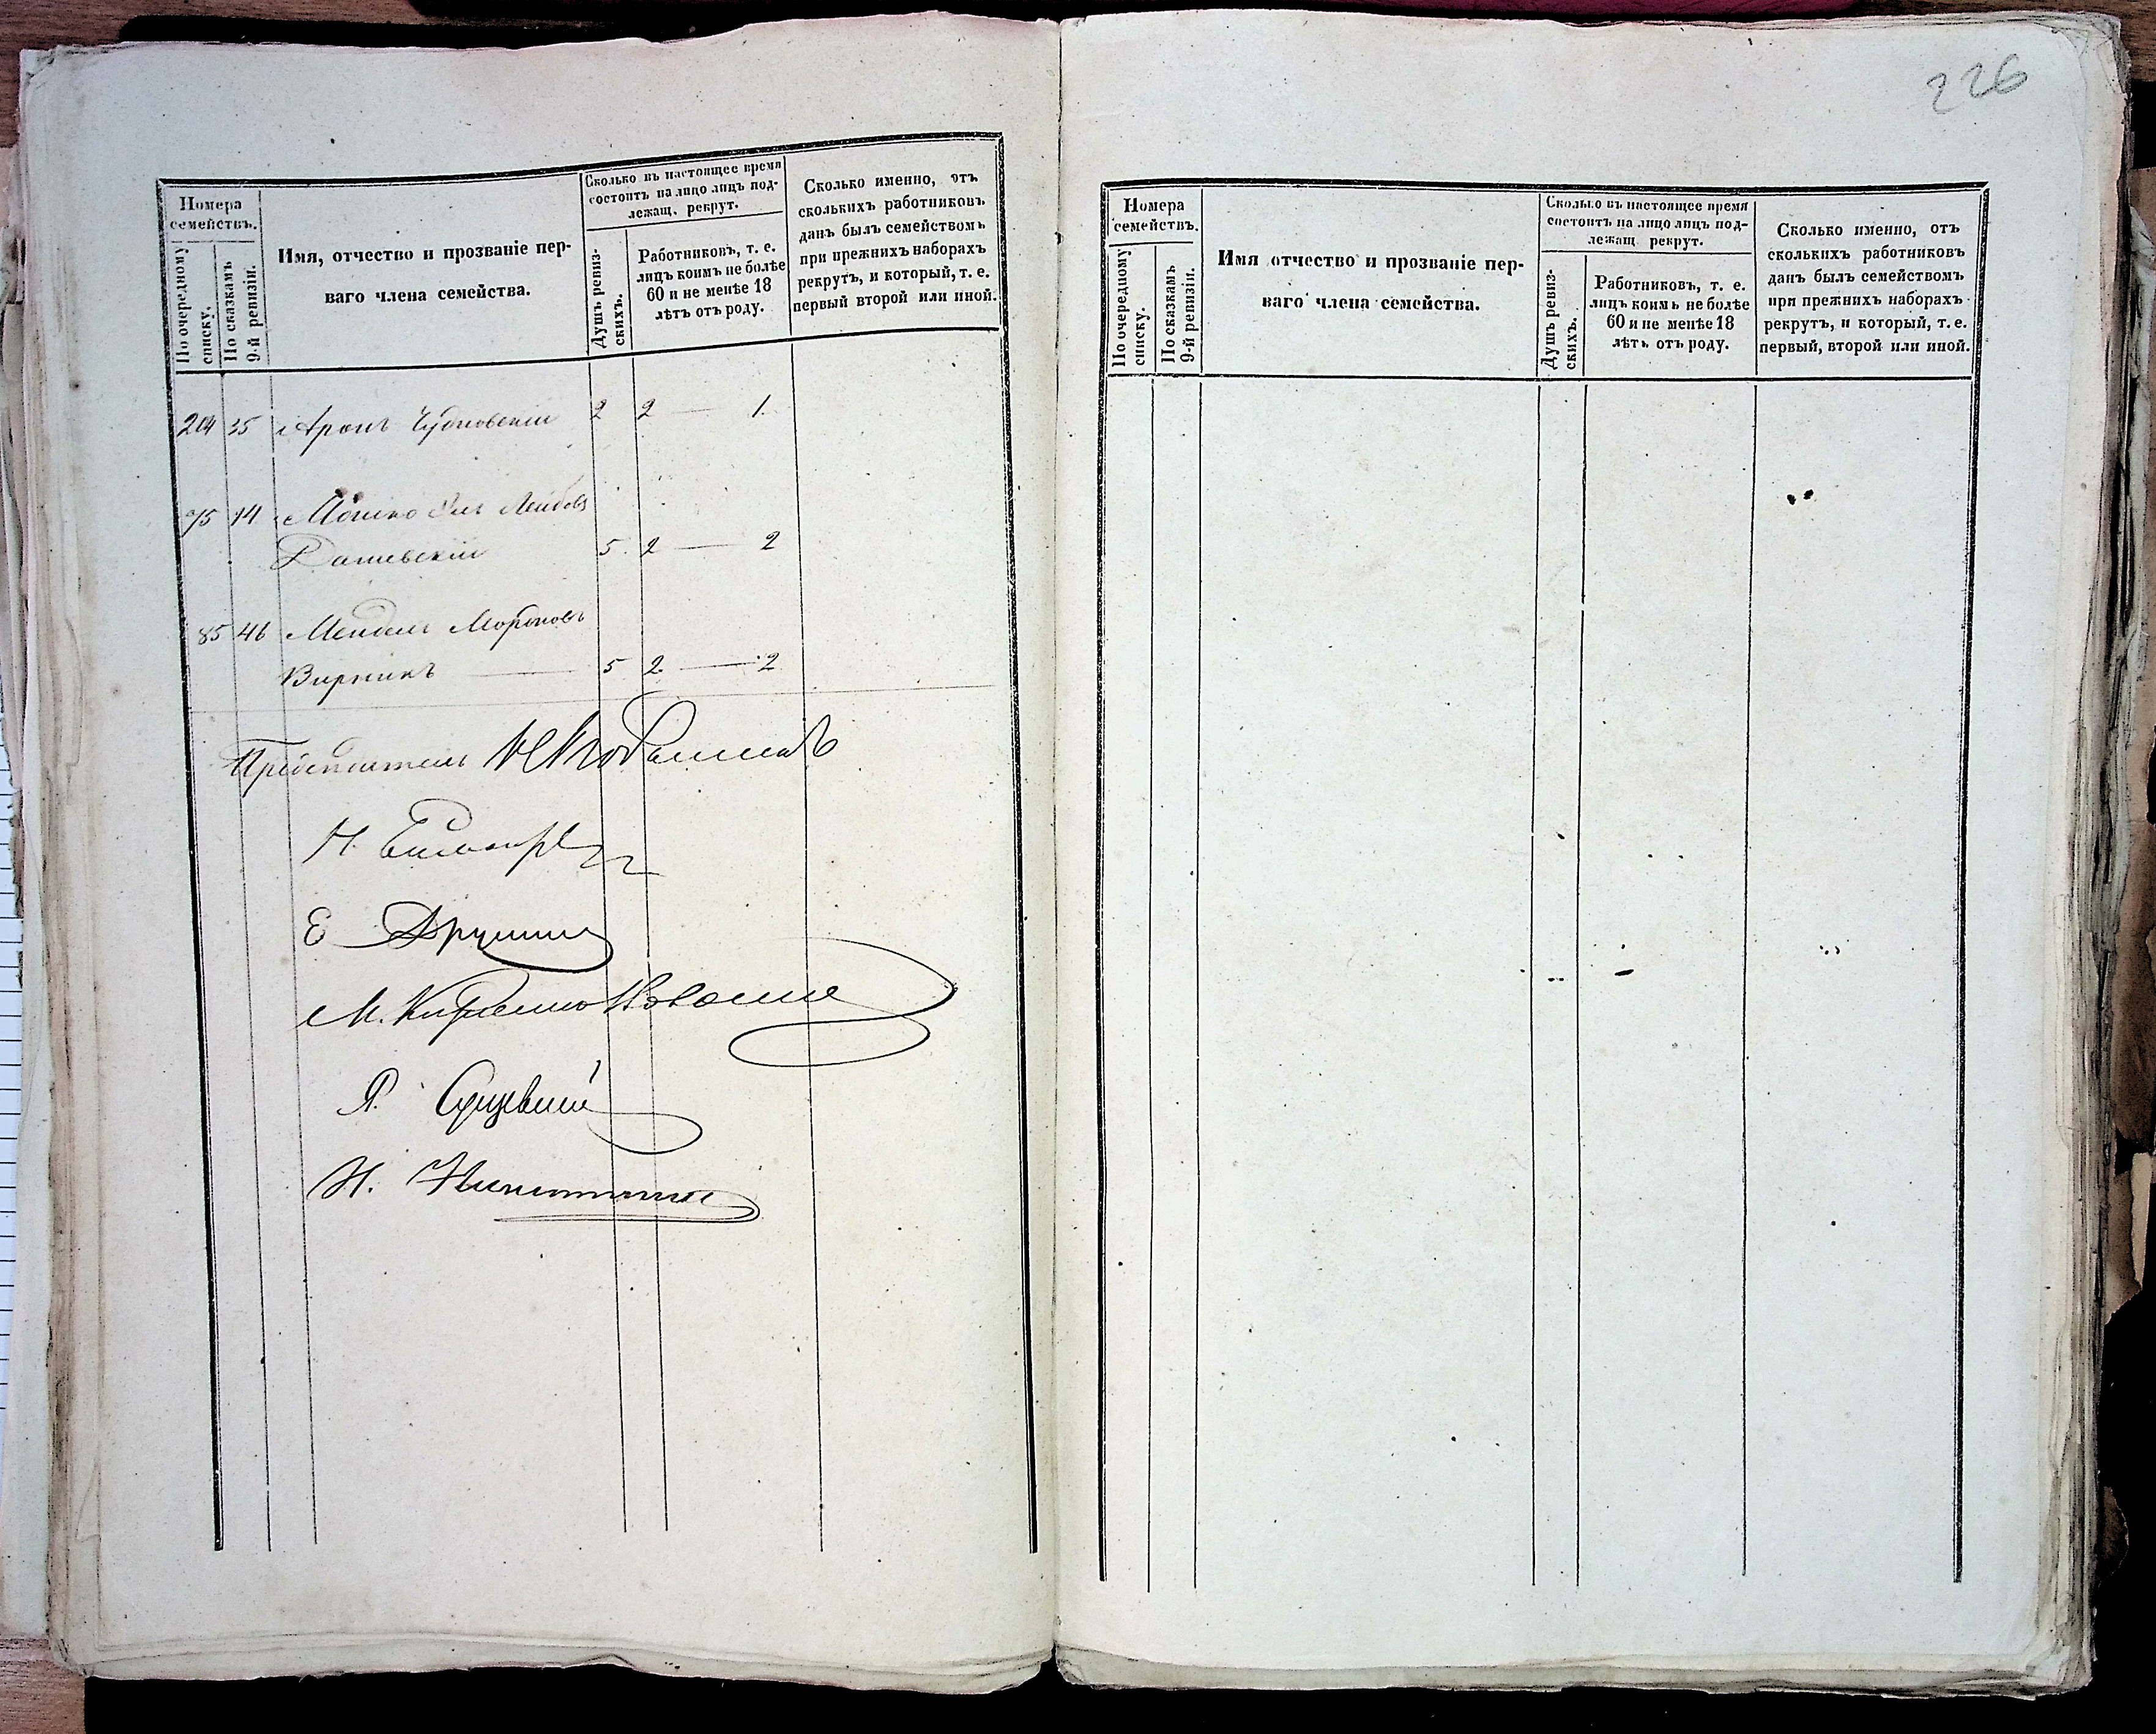 226
Номера
семействъ.
По очередному
списку.
По сказкамъ
9-й ревизіи.
Имя, отчество и прозваніе пер-
ваго члена семейства.
Сколько въ настоящее время
состоитъ на лицо лицъ под-
лежащ. рекрут.
Душъ ревиз-
скихъ.
Работниковъ, т. е.
лицъ коимъ не болѣе
60 и не менѣе 18
лѣтъ отъ роду.
Сколько именно, отъ
сколькихъ работниковъ
данъ былъ семействомъ
при прежнихъ наборахъ
рекрутъ, и который, т. е.
первый второй или иной.
204 35 Аронъ Чудновскій 2 2 — 1.
75 14 Мошко Лейбовъ
Рашевскій 5. 2 — 2
85 46 Мендель Мордковъ
Вирникъ — 5 2 — 2
Предсѣдатель
Н.
Е
М.
Я.
Н.
Номера
семействъ.
По очередному
списку.
По сказкамъ
9-й ревизіи.
Имя отчество и прозваніе пер-
ваго члена семейства.
Сколько въ настоящее время
состоитъ на лицо лицъ под-
лежащ. рекрут.
Душъ ревиз-
скихъ.
Работниковъ, т. е.
лицъ коимъ не болѣе
60 и не менѣе 18
лѣтъ отъ роду.
Сколько именно, отъ
сколькихъ работниковъ
данъ былъ семействомъ
при прежнихъ наборахъ
рекрутъ, и который, т. е.
первый, второй или иной.